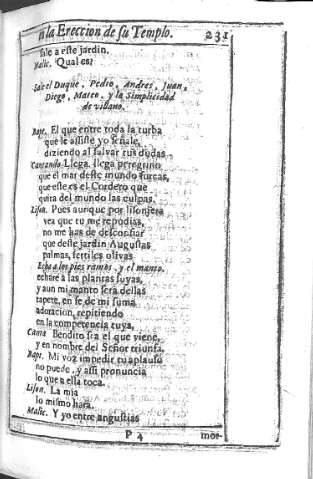 en la Ereccion de su Templo. 231
sale a este jardin.
Malic. Qual es?
Sale el Duque, Pedro, Andres, Juan,
Diego, Mateo, y la Simplicidad
de villano.
Bapt. El que entre toda la turba
que le assiste yo señale,
diziendo al salvar sus dudas.
Cantando Llega, llega peregrino
que el mar deste mundo surcas,
que este es el Cordero que
quita del mundo las culpas.
Lison. Pues aunque por lisonjera
vea que tu me repudias,
no me has de desconfiar
que deste jardin Augustas
palmas, fertiles olivas
Echa a los pies ramos, y el manto.
echare a las plantas suyas,
y aun mi manto será dellas
tapete, en fe de mi suma
adoracion, repitiendo
en la competencia tuya,
Canta Bendito sea el que viene,
y en nombre del Señor triunfa.
Bapt. Mi voz impedir tu aplauso
no puede, y assi pronuncia
lo que a ella toca.
Lison. La mia
lo mismo hará.
Malic. Y yo entre angustias
P 4 mor-